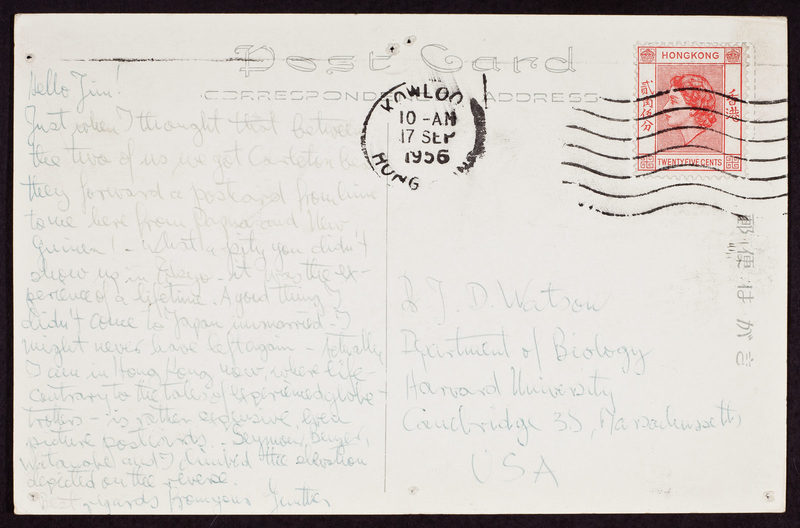 Post Card
CORRESPONDENCE ADDRESS
HONGKONG
貳角伍分
香港
TWENTYFIVE CENTS
KOWLOO
10 - AM
17 SEP
1956
HONG
郵便はがき
Hello Jim!
Just when I thought that between
the two of us we got Carleton
they forward a postcard from him
to me here from Papua and New
Guinea! - What a pity you didn't
show up in Tokyo - it was the ex-
perience of a lifetime. A good thing I
didn't come to Japan unmarried - I
might never have left again - Actually
I am in Hong Kong now where life -
contrary to the tales of experienced globe-
trotters - is rather expensive, even
picture postcards. Seymour, Benzer,
Watanabe and I climbed the elevation
depicted on the reverse.
Best regards from your Gunther
J. D. Watson
Department of Biology
Harvard University
Cambridge 38, Massachusetts
USA